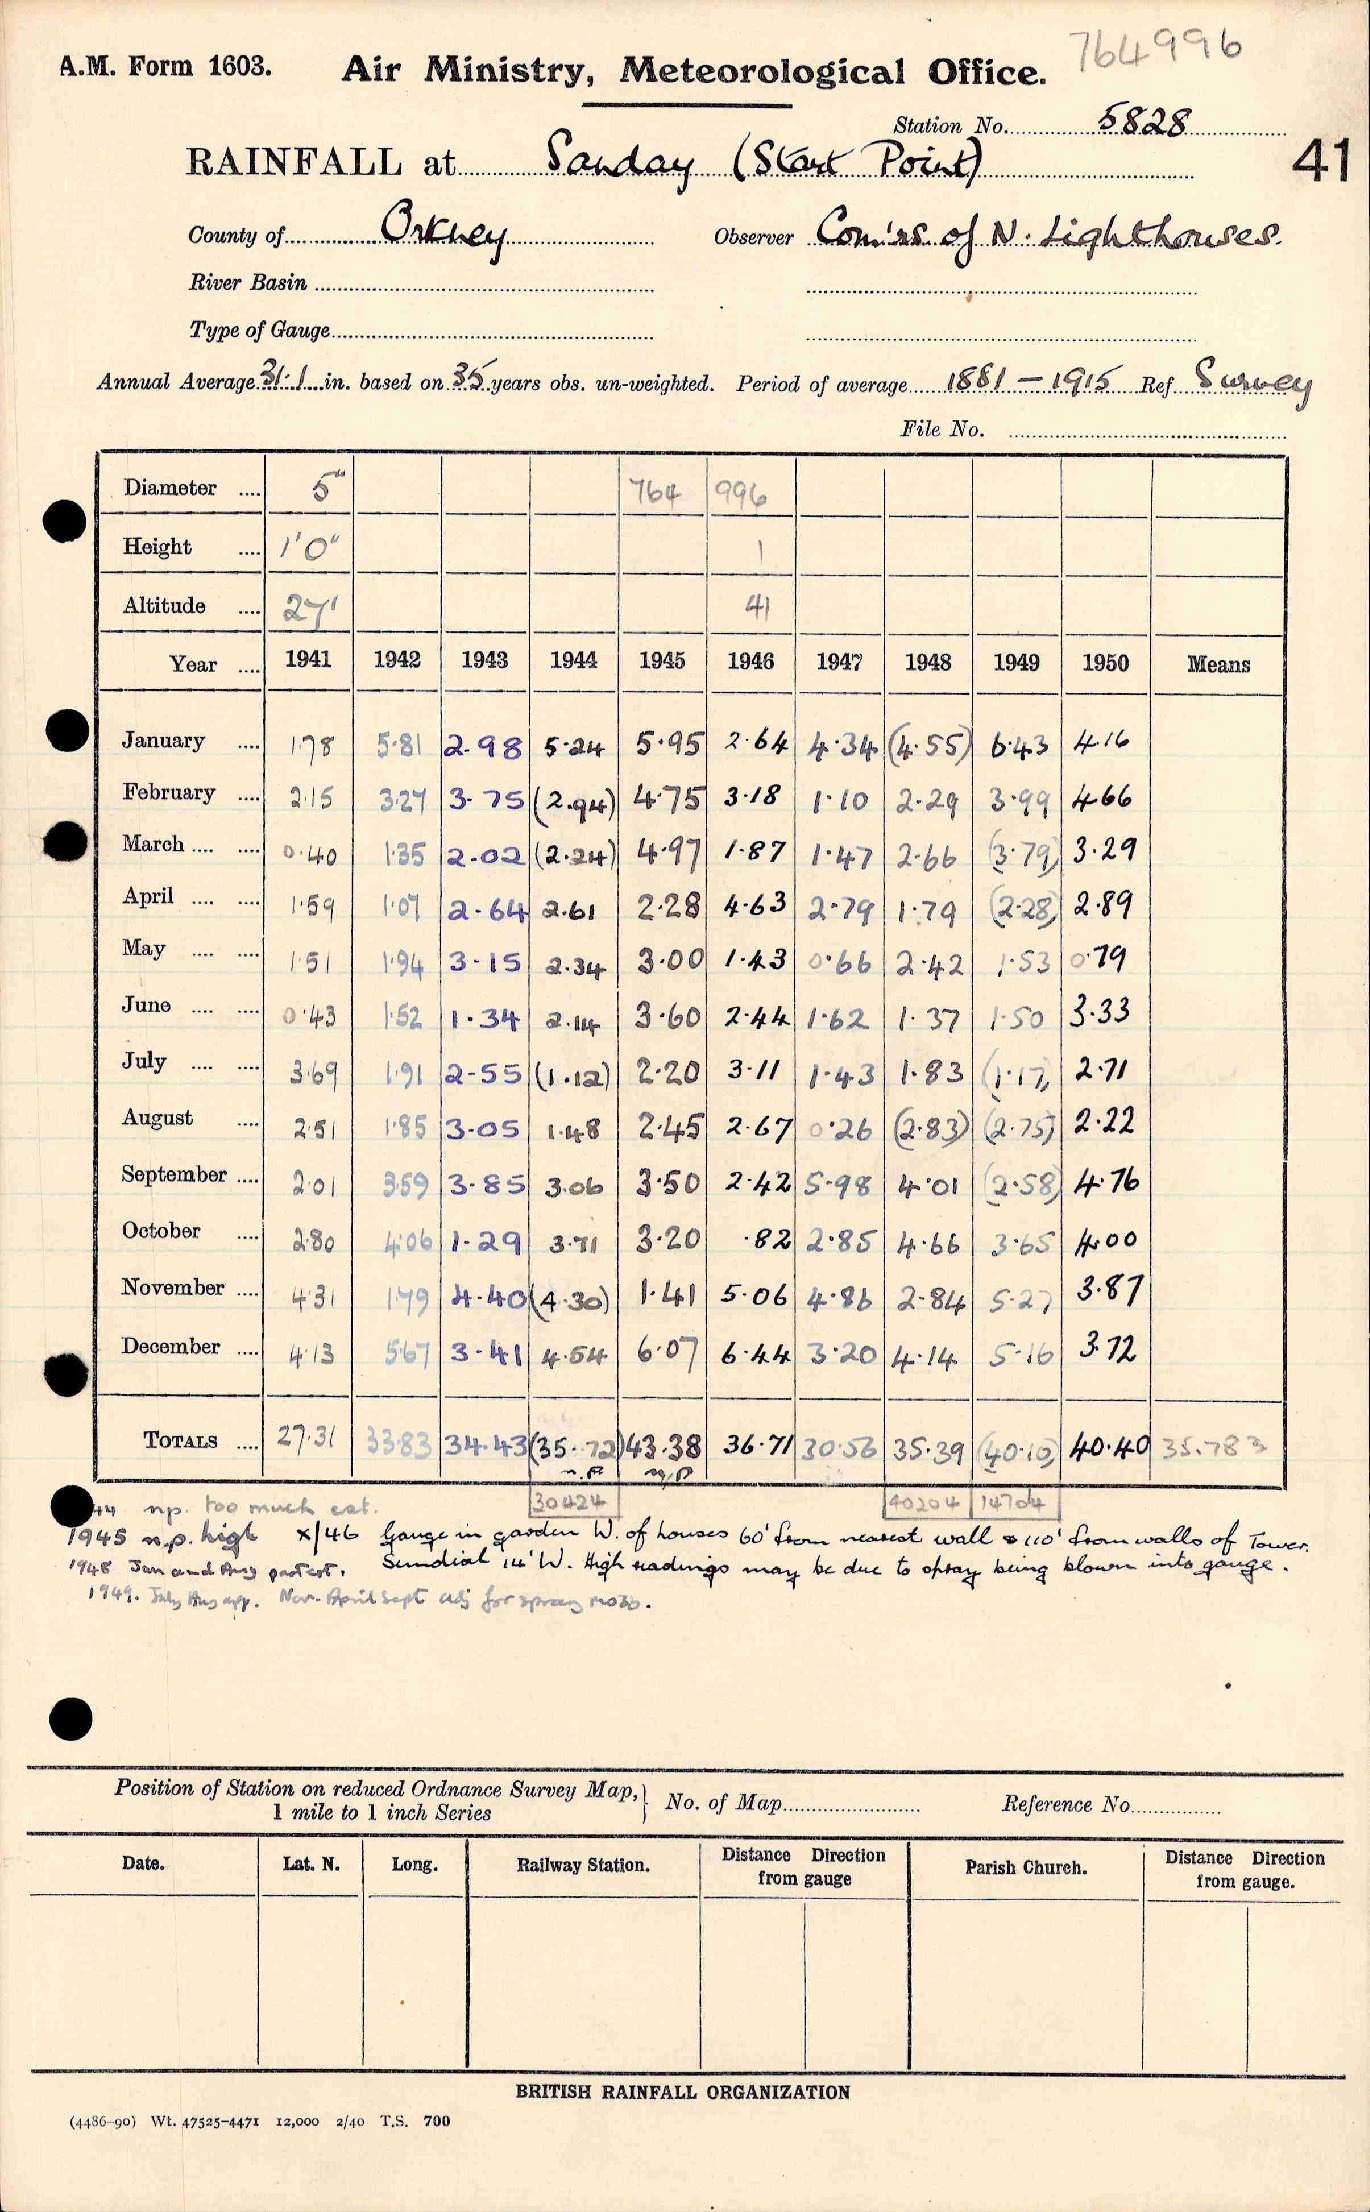 764996
A.M. Form 1603. Air Ministry, Meteorological Office.
Station No. 5828
RAINFALL at Sanday (Start Point) 41
County of Orkney Observer Com'rs. of N. Lighthouses.
River Basin
Type of Gauge
Annual Average 31.1 in. based on 35 years obs. un-weighted. Period of average 1881 – 1915 Ref. Survey
File No.
Diameter .... 5" 764 996
Height .... 1'0" 1
Altitude .... 27' 41
Year .... 1941 1942 1943 1944 1945 1946 1947 1948 1949 1950 Means
January .... 1.78 5.81 2.98 5.24 5.95 2.64 4.34 (4.55) 6.43 4.16
February .... 2.15 3.27 3.75 (2.94) 4.75 3.18 1.10 2.29 3.99 4.66
March .... .... 0.40 1.35 2.02 (2.24) 4.97 1.87 1.47 2.66 (3.79) 3.29
April .... .... 1.59 1.07 2.64 2.61 2.28 4.63 2.79 1.79 (2.28) 2.89
May .... .... 1.51 1.94 3.15 2.34 3.00 1.43 0.66 2.42 1.53 0.79
June .... .... 0.43 1.52 1.34 2.14 3.60 2.44 1.62 1.37 1.50 3.33
July .... .... 3.69 1.91 2.55 (1.12) 2.20 3.11 1.43 1.83 (1.17) 2.71
August .... 2.51 1.85 3.05 1.48 2.45 2.67 0.26 (2.83) (2.75) 2.22
September .... 2.01 3.59 3.85 3.06 3.50 2.42 5.98 4.01 (2.58) 4.76
October .... 2.80 4.06 1.29 3.71 3.20 .82 2.85 4.66 3.65 4.00
November .... 4.31 1.79 4.40 (4.30) 1.41 5.06 4.86 2.84 5.27 3.87
December .... 4.13 5.67 3.41 4.54 6.07 6.44 3.20 4.14 5.16 3.72
TOTALS .... 27.31 33.83 34.43 (35.72) 43.38 36.71 30.56 35.39 (40.10) 40.40 35.783
n.P n/P
30424 40204 14704
44 np. too much est.
1945 n.p. high x/46 Gauge in garden W. of houses 60' from nearest wall & 110' from walls of Tower.
1948 Jan and Aug part est. Sundial 14' W. High readings may be due to spray being blown into gauge.
1949. July Aug app. Mar. April Sept adj for spray
Position of Station on reduced Ordnance Survey Map, } No. of Map Reference No.
1 mile to 1 inch Series
Date. Lat. N. Long. Railway Station. Distance Direction from gauge Parish Church. Distance Direction from gauge.
BRITISH RAINFALL ORGANIZATION
(4486–90) Wt. 47525–4471 12,000 2/40 T.S. 700